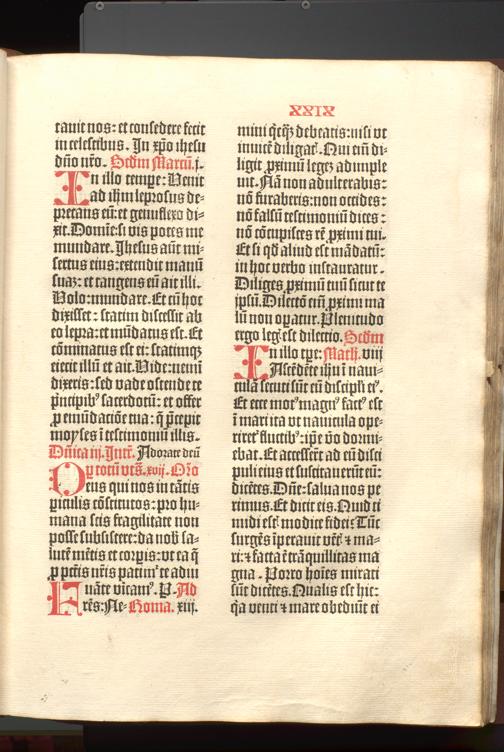 XXIX
tauit nos: et consedere fecit
in celestibus. In xp̄o ihesu
dn̄o nr̄o. Scd̄m Marcū. j.
In illo tempe: Venit
ad ih̄m leprosus de-
precans eū: et genuflexo di-
xit. Domine: si vis potes me
mundare. Ihesus aūt mi-
sertus eius: extendit manū
suaꝫ: et tangens eū ait illi.
Uolo: mundare. Et cū hoc
dixisset: statim discessit ab
eo lepra: et mūdatus est. Et
cōminatus est ei: statimqꝫ
eiecit illū et ait. Vide: nemī
dixeris: sed vade ostende te
prīcipibꝰ sacerdotū: et offer
ꝓ emūdatiōe tua: q̄ p̄cepit
moyses ī testimoniū illis.
Dn̄ica iij. Intr̄. Adorate deū
ꝑ totū vt sͣ. xvij. Or̄o
Deus qui nos in tātis
ꝑiculis cōstitutos: pro hu-
mana scis fragilitate non
posse subsistere: da nob̄ sa-
lutē mētis et corpis: vt ea q̄
ꝓ pctīs nr̄is patimꝰ te adiu
uāte vīcamꝰ. P. Ad
Fr̄es: Ne- Roma. xiij.
mini q̇cqꝫ debeatis: nisi vt
inuicē diligatꝭ. Qui eni di-
ligit ꝓximū legeꝫ adimple
uit. Nā non adulterabis:
nō furaberis: non occides:
nō falsū testimoniū dices:
nō cōcupisces rē ꝓximi tui.
Et si qd̄ aliud est mādatū:
in hoc verbo instauratur.
Diliges ꝓximū tuū sicut te
ip̄sū. Dilectō eni ꝓximi ma
lū non oꝑatur. Plenitudo
ergo legꝭ est dilectio. Scd̄m
In illo tp̄e: Math. viij
Ascēdēte ih̄u ī naui-
culā secuti sūt eū discipli eꝰ.
Et ecce motꝰ magnꝰ factꝰ est
ī mari ita vt nauicula ope-
riretꝰ fluctibꝰ: ip̄e v̄o dormi-
ebat. Et accesserūt ad eū disci
puli eius et suscitauerūt eū:
dicētes. Dn̄e: salua nos pe
rimus. Et dicit eis. Quid ti
midi estꝭ modice fidei? Tūc
surgēs īperauit vētꝭ ⁊ ma-
ri: ⁊ facta ē trāquillitas ma
gna. Porro hoīes mirati
sūt dicētes. Qualis est hic:
q̇a venti ⁊ mare obediūt ei